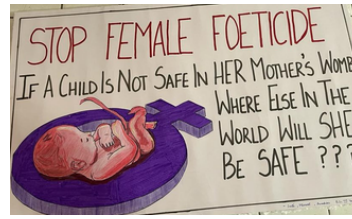 STOP FEMALE FOETICIDE
IF A CHILD IS NOT SAFE IN HER MOTHER'S WOMB
WHERE ELSE IN THE
WORLD WILL SHE
BE SAFE ???